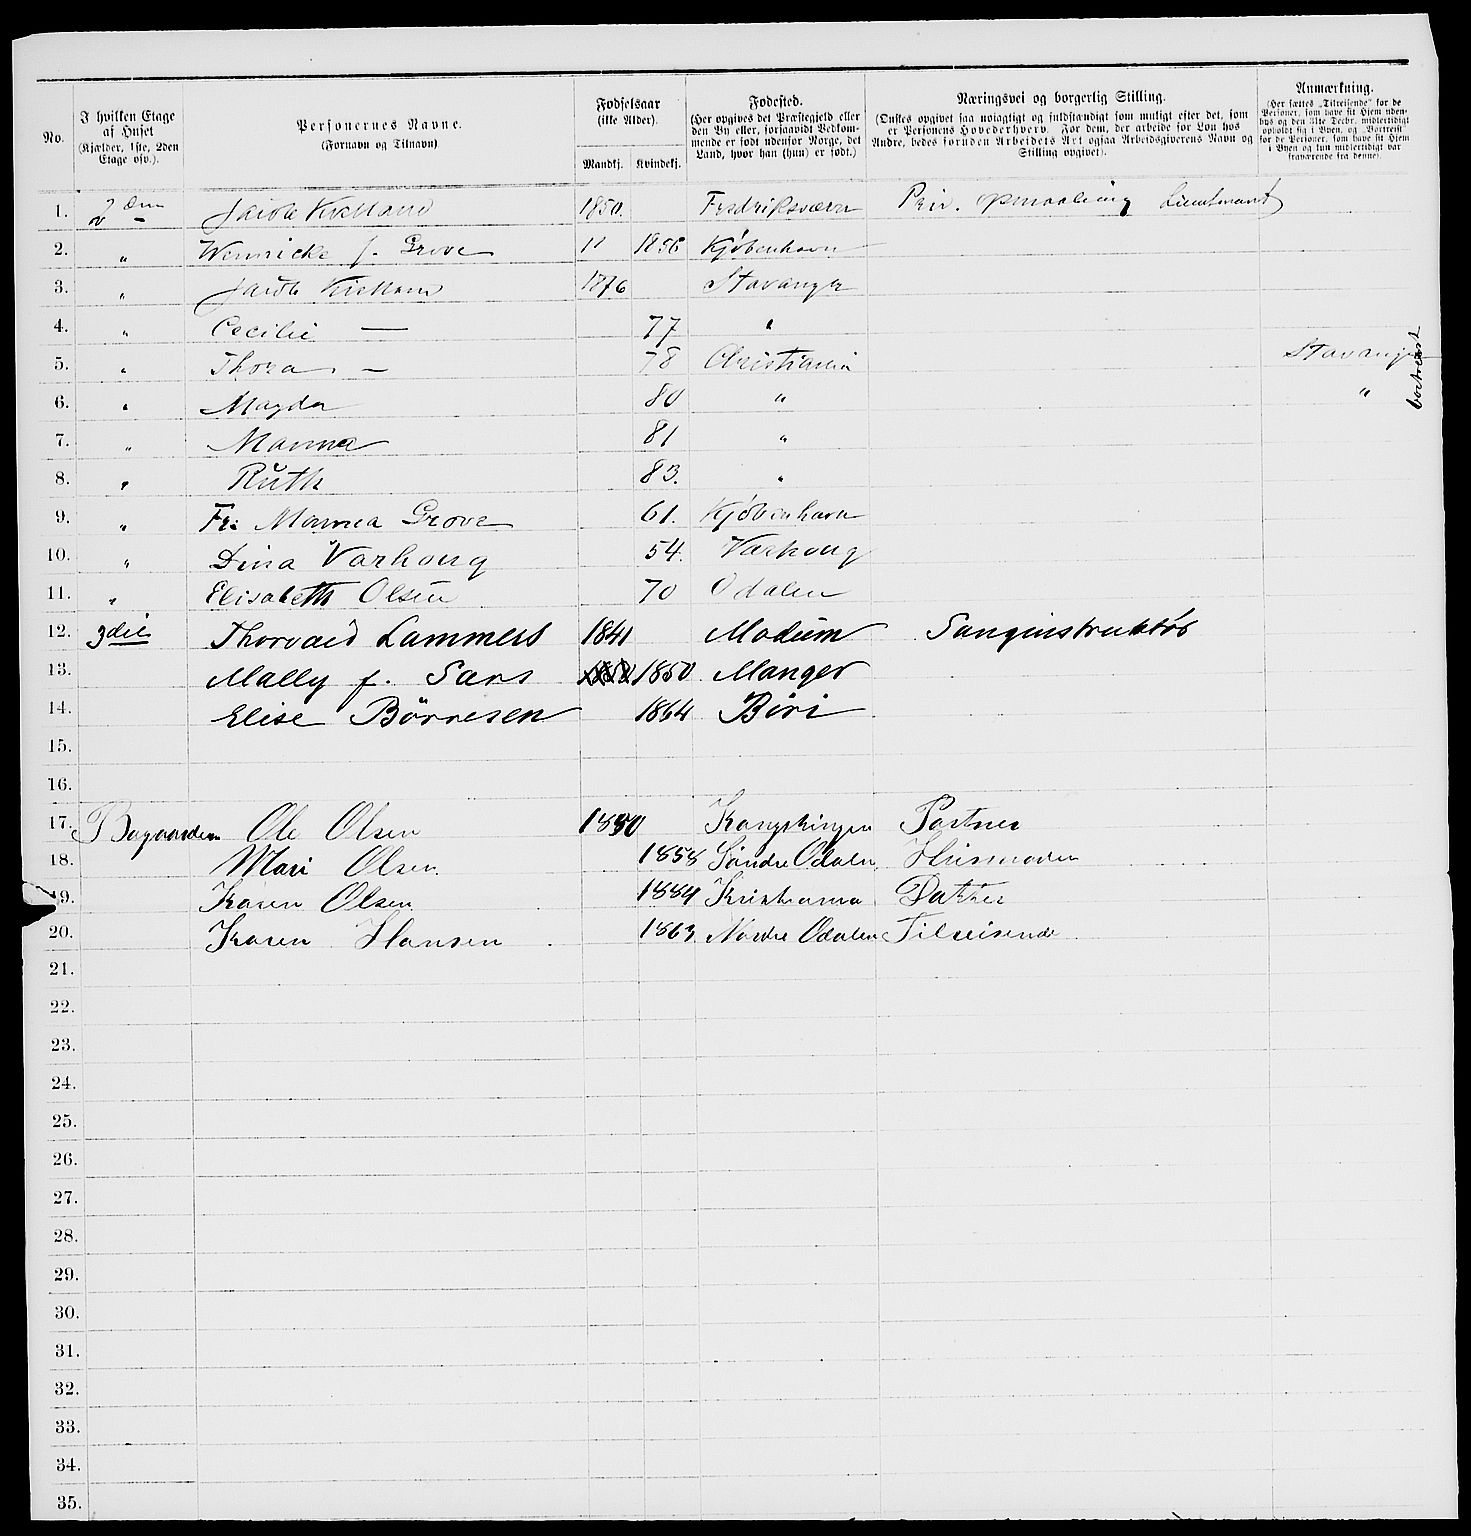 No. | I hvilken Etage af Huset (Kjælder, 1ste, 2den Etage osv.). | Personernes Navne. (Fornavn og Tilnavn) | Fødselsaar (ikke Alder). Mandkj. | Kvindekj. | Fødested. (Her opgives det Præstegjeld eller den By eller, forsaavidt Vedkommende er født udenfor Norge, det Land, hvor han (hun) er født.) | Næringsvei og borgerlig Stilling. (Ønskes opgivet saa nøiagtigt og fuldstændigt som muligt efter det, som er Personens Hovederhverv. For dem, der arbeide for Løn hos Andre, bedes foruden Arbeidets Art ogsaa Arbeidsgiverens Navn og Stilling opgivet). | Anmærkning. (Her sættes „Tilreisende" for de Personer, som have sit Hjem udenbys og den 31te Decbr. midlertidigt opholdt sig i Byen, og „Bortreist" for de Personer, som have sit Hjem i Byen og kun midlertidigt var fraværende fra denne).
1. 2den Jacob Kielland 1850. Fredriksværn Prir. opmaaling Lieutenant
2. " Wennicke f. Grove " 1856 Kjøbenhavn
3. " Jacob Kielland 1876 Stavanger
4. " Cecilie — 77 "
5. " Thora — 78 Christiania Stavanger bortreist
6. " Magda 80 " "
7. " Manna 81 "
8. " Ruth 83. "
9. " Fr: Manna Grove 61. Kjøbenhavn
10. " Dina Varhoug 54. Varhoug
11. " Elisabeth Olsen 70 Odalen
12. 3die Thorvald Lammers 1841 Modum Sanginstruktør
13. Mally f. Sars 1850 Manger
14. Elise Børresen 1864 Biri
15.
16.
17. Bagaarden Ole Olsen 1850 Kongsvingen Portner
18. Mari Olsen 1858 Søndre Odalen Husmoder
19. Karen Olsen 1884 Kristiania Datter
20. Karen Hansen 1863 Nordre Odalen Tilreisende
21.
22.
23.
24.
25.
26.
27.
28.
29.
30.
31.
32.
33.
34.
35.